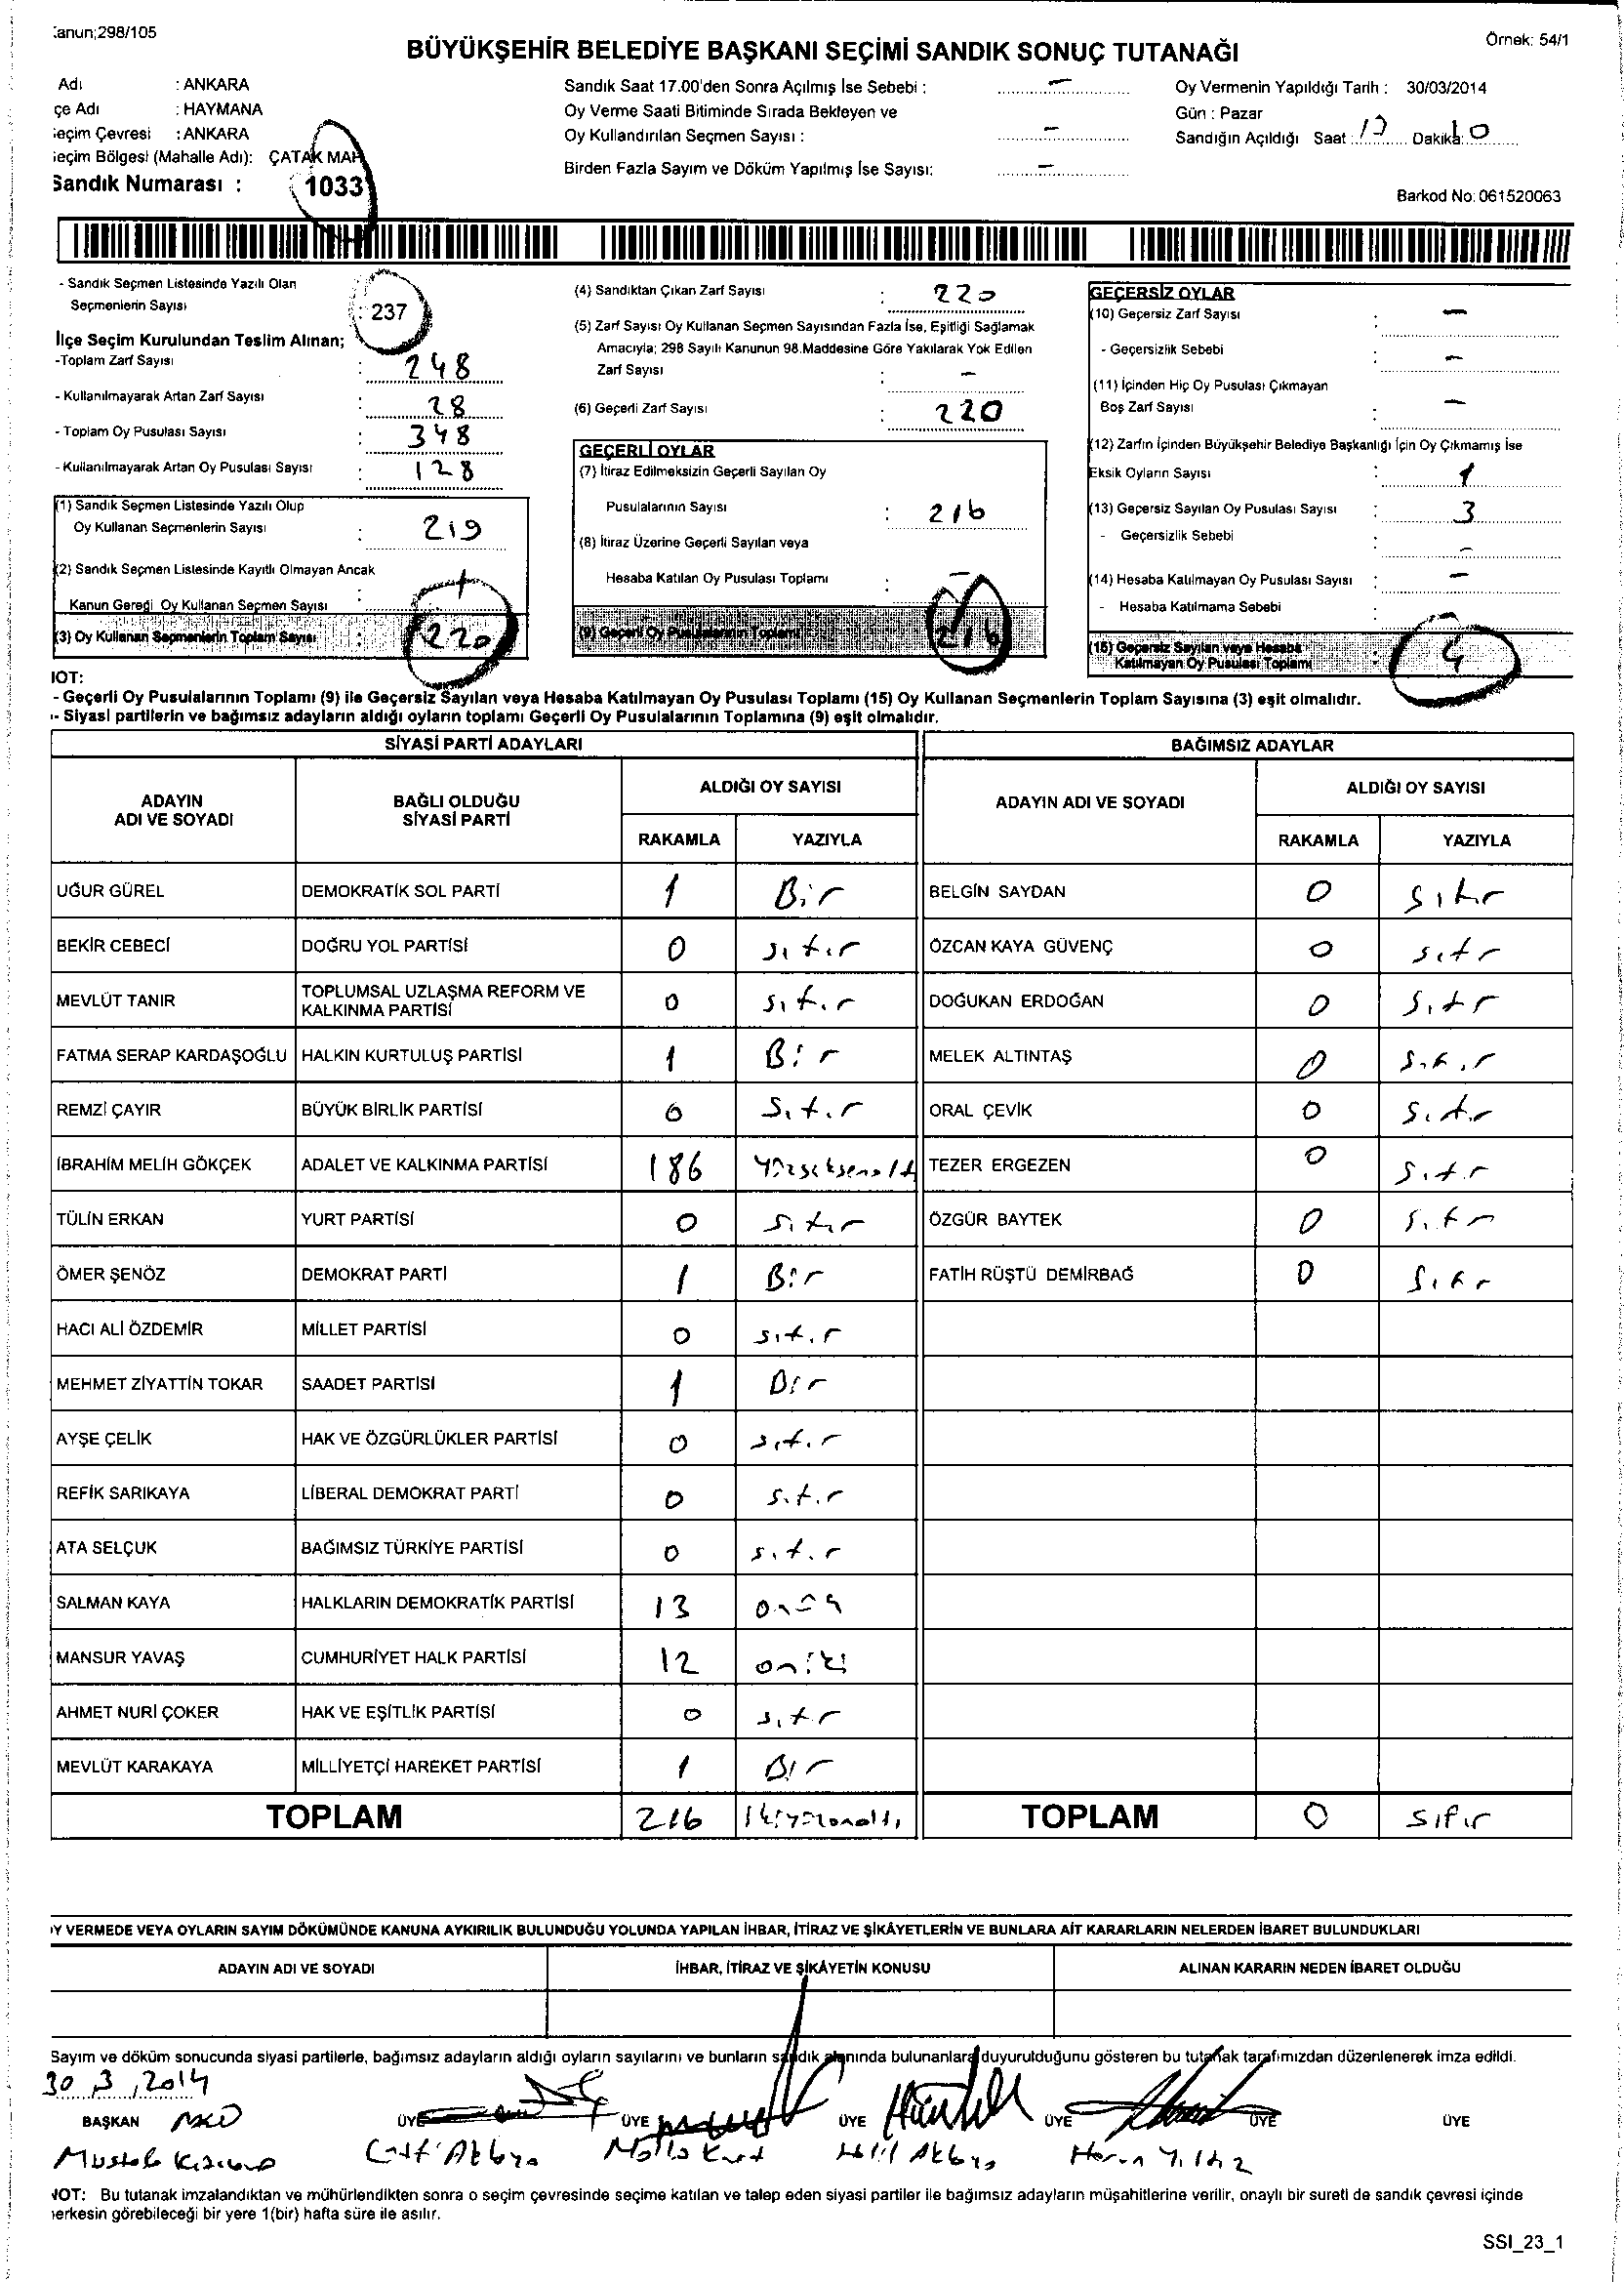 anun;298/105
Örnek: 54/1
BÜYÜKŞEHİR BELEDİYE BAŞKANI SEÇİMİ SANDIK SONUÇ TUTANAĞI
Adı : ANKARA
çe Adı : HAYMANA
eçim Çevresi : ANKARA
eçim Bölgesi (Mahalle Adı): ÇATAK MAH
Sandık Numarası : 1033
Sandık Saat 17.00'den Sonra Açılmış İse Sebebi : –
Oy Verme Saati Bitiminde Sırada Bekleyen ve
Oy Kullandırılan Seçmen Sayısı : –
Birden Fazla Sayım ve Döküm Yapılmış İse Sayısı: –
Oy Vermenin Yapıldığı Tarih : 30/03/2014
Gün : Pazar
Sandığın Açıldığı Saat : 17 Dakika: 10
Barkod No: 061520063
- Sandık Seçmen Listesinde Yazılı Olan
Seçmenlerin Sayısı : 237
İlçe Seçim Kurulundan Teslim Alınan;
-Toplam Zarf Sayısı : 248
- Kullanılmayarak Artan Zarf Sayısı : 28
- Toplam Oy Pusulası Sayısı : 348
- Kullanılmayarak Artan Oy Pusulası Sayısı : 128
(1) Sandık Seçmen Listesinde Yazılı Olup
Oy Kullanan Seçmenlerin Sayısı : 219
(2) Sandık Seçmen Listesinde Kayıtlı Olmayan Ancak
Kanun Gereği Oy Kullanan Seçmen Sayısı : 1
(3) Oy Kullanan Seçmenlerin Toplam Sayısı : 220
(4) Sandıktan Çıkan Zarf Sayısı : 220
(5) Zarf Sayısı Oy Kullanan Seçmen Sayısından Fazla İse, Eşitliği Sağlamak
Amacıyla; 298 Sayılı Kanunun 98.Maddesine Göre Yakılarak Yok Edilen
Zarf Sayısı : –
(6) Geçerli Zarf Sayısı : 220
GEÇERLİ OYLAR
(7) İtiraz Edilmeksizin Geçerli Sayılan Oy
Pusulalarının Sayısı : 216
(8) İtiraz Üzerine Geçerli Sayılan veya
Hesaba Katılan Oy Pusulası Toplamı : –
(9) Geçerli Oy Pusulalarının Toplamı : 216
GEÇERSİZ OYLAR
(10) Geçersiz Zarf Sayısı : –
- Geçersizlik Sebebi : –
(11) İçinden Hiç Oy Pusulası Çıkmayan
Boş Zarf Sayısı : –
(12) Zarfın İçinden Büyükşehir Belediye Başkanlığı İçin Oy Çıkmamış İse
Eksik Oyların Sayısı : 1
(13) Geçersiz Sayılan Oy Pusulası Sayısı : 3
- Geçersizlik Sebebi : –
(14) Hesaba Katılmayan Oy Pusulası Sayısı : –
- Hesaba Katılmama Sebebi : –
(15) Geçersiz Sayılan veya Hesaba
Katılmayan Oy Pusulası Toplamı : 4
NOT:
- Geçerli Oy Pusulalarının Toplamı (9) ile Geçersiz Sayılan veya Hesaba Katılmayan Oy Pusulası Toplamı (15) Oy Kullanan Seçmenlerin Toplam Sayısına (3) eşit olmalıdır.
- Siyasi partilerin ve bağımsız adayların aldığı oyların toplamı Geçerli Oy Pusulalarının Toplamına (9) eşit olmalıdır.
SİYASİ PARTİ ADAYLARI BAĞIMSIZ ADAYLAR
ADAYIN ADI VE SOYADI BAĞLI OLDUĞU SİYASİ PARTİ ALDIĞI OY SAYISI ADAYIN ADI VE SOYADI ALDIĞI OY SAYISI
RAKAMLA YAZIYLA RAKAMLA YAZIYLA
UĞUR GÜREL DEMOKRATİK SOL PARTİ 1 Bir BELGİN SAYDAN 0 Sıfır
BEKİR CEBECİ DOĞRU YOL PARTİSİ 0 sıfır ÖZCAN KAYA GÜVENÇ 0 sıfr
MEVLÜT TANIR TOPLUMSAL UZLAŞMA REFORM VE KALKINMA PARTİSİ 0 sıfır DOĞUKAN ERDOĞAN 0 sıfr
FATMA SERAP KARDAŞOĞLU HALKIN KURTULUŞ PARTİSİ 1 Bir MELEK ALTINTAŞ 0 sıfır
REMZİ ÇAYIR BÜYÜK BİRLİK PARTİSİ 0 sıfır ORAL ÇEVİK 0 sıfır
İBRAHİM MELİH GÖKÇEK ADALET VE KALKINMA PARTİSİ 186 Yüzseksenalt TEZER ERGEZEN 0 sıfır
TÜLİN ERKAN YURT PARTİSİ 0 sıfır ÖZGÜR BAYTEK 0 sıfr
ÖMER ŞENÖZ DEMOKRAT PARTİ 1 Bir FATİH RÜŞTÜ DEMİRBAĞ 0 sıfır
HACI ALİ ÖZDEMİR MİLLET PARTİSİ 0 sıfır
MEHMET ZİYATTİN TOKAR SAADET PARTİSİ 1 Bir
AYŞE ÇELİK HAK VE ÖZGÜRLÜKLER PARTİSİ 0 sıfır
REFİK SARIKAYA LİBERAL DEMOKRAT PARTİ 0 sıfır
ATA SELÇUK BAĞIMSIZ TÜRKİYE PARTİSİ 0 sıfır
SALMAN KAYA HALKLARIN DEMOKRATİK PARTİSİ 13 onüç
MANSUR YAVAŞ CUMHURİYET HALK PARTİSİ 12 oniki
AHMET NURİ ÇOKER HAK VE EŞİTLİK PARTİSİ 0 sıfr
MEVLÜT KARAKAYA MİLLİYETÇİ HAREKET PARTİSİ 1 Bir
TOPLAM 216 İkiyüzonaltı TOPLAM 0 Sıfır
Y VERMEDE VEYA OYLARIN SAYIM DÖKÜMÜNDE KANUNA AYKIRILIK BULUNDUĞU YOLUNDA YAPILAN İHBAR, İTİRAZ VE ŞİKÂYETLERİN VE BUNLARA AİT KARARLARIN NELERDEN İBARET BULUNDUKLARI
ADAYIN ADI VE SOYADI İHBAR, İTİRAZ VE ŞİKÂYETİN KONUSU ALINAN KARARIN NEDEN İBARET OLDUĞU
Sayım ve döküm sonucunda siyasi partilerle, bağımsız adayların aldığı oyların sayılarını ve bunların sandık alanında bulunanlara duyurulduğunu gösteren bu tutanak tarafımızdan düzenlenerek imza edildi.
30 3 2014
BAŞKAN ÜYE ÜYE ÜYE ÜYE ÜYE ÜYE
Mustafa Akbya Molla Kurt Halil Akbya Harun Yıldız
NOT: Bu tutanak imzalandıktan ve mühürlendikten sonra o seçim çevresinde seçime katılan ve talep eden siyasi partiler ile bağımsız adayların müşahitlerine verilir, onaylı bir sureti de sandık çevresi içinde
herkesin görebileceği bir yere 1(bir) hafta süre ile asılır.
SSI_23_1